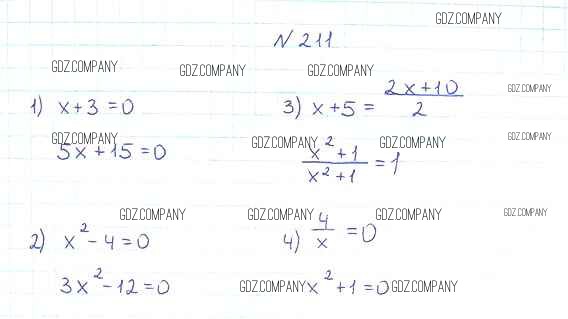 GDZ.COMPANY
N 211
GDZ.COMPANY GDZ.COMPANY GDZ.COMPANY GDZ.COMPANY
1) x+3=0
3) x+5 = \frac{2x+10}{2}
GDZ.COMPANY GDZ.COMPANY GDZ.COMPANY GDZ.COMPANY
5x+15=0
\frac{x²+1}{x²+1} = 1
GDZ.COMPANY GDZ.COMPANY GDZ.COMPANY GDZ.COMPANY
2) x²-4=0
4) \frac{4}{x} = 0
3x²-12=0
GDZ.COMPANY x²+1=0 GDZ.COMPANY